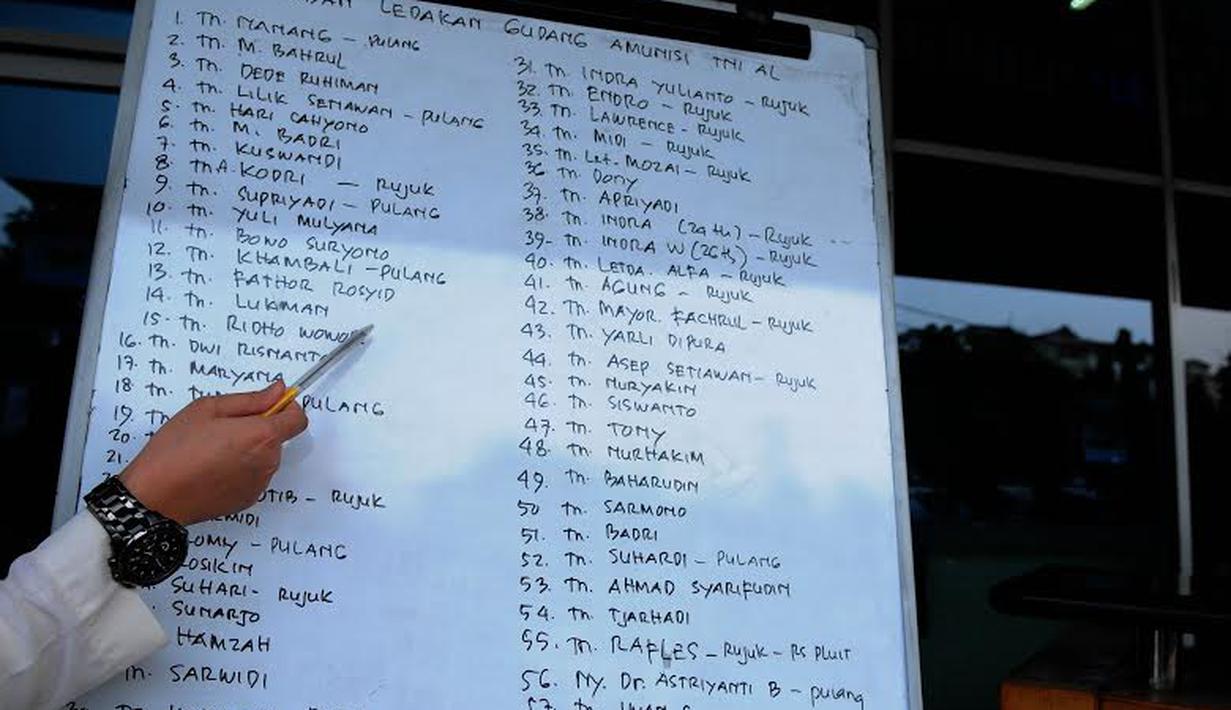 LEDAKAN GUDANG AMUNISI TNI AL
1. Tn. MAMANG – PULANG
2. Tn. M. BAHRUL
3. Tn. DEDE RUHIMAN
4. Tn. LILIK SETIAWAN – PULANG
5. Tn. HARI CAHYONO
6. Tn. M. BADRI
7. Tn. KUSWANDI
8. Tn. A. KODRI – Rujuk
9. Tn. SUPRIYADI – PULANG
10. Tn. YULI MULYANA
11. Tn. BONO SURYONO
12. Tn. KHAMBALI – PULANG
13. Tn. FATHOR ROSYID
14. Tn. LUKMAN
15. Tn. RIDHO
16. Tn. DWI
17. Tn. MARYANA
18. Tn. PULANG
19. Tn
20.
21.
– Rujuk
– PULANG
SUHARI – Rujuk
SUNARJO
HAMZAH
SARWIDI
31. Tn. INDRA YULIANTO – Rujuk
32. Tn. ENDRO – Rujuk
33. Tn. LAWRENCE – Rujuk
34. Tn. MIDI – Rujuk
35. Tn. Let. MOZAI – Rujuk
36 Tn. DONY
37. Tn. APRIYADI
38. Tn. INDRA (24 th) – Rujuk
39- Tn. INDRA W (26 th) – Rujuk
40. Tn. LETDA. ALFA – Rujuk
41. Tn. AGUNG – Rujuk
42. Tn. MAYOR. FACHRUL – Rujuk
43. Tn. YARLI DIPURA
44. Tn. ASEP SETIAWAN – Rujuk
45. Tn. NURYAKIN
46. Tn. SISWANTO
47. Tn. TOMY
48. Tn. NURHAKIM
49. Tn. BAHARUDIN
50 Tn. SARMONO
51. Tn. BADRI
52. Tn. SUHARDI – PULANG
53. Tn. AHMAD SYARIFUDIN
54. Tn. TJARHADI
55. Tn. RAFLES – Rujuk – RS PLUIT
56. Ny. Dr. ASTRIYANTI B – pulang
57. Tn.